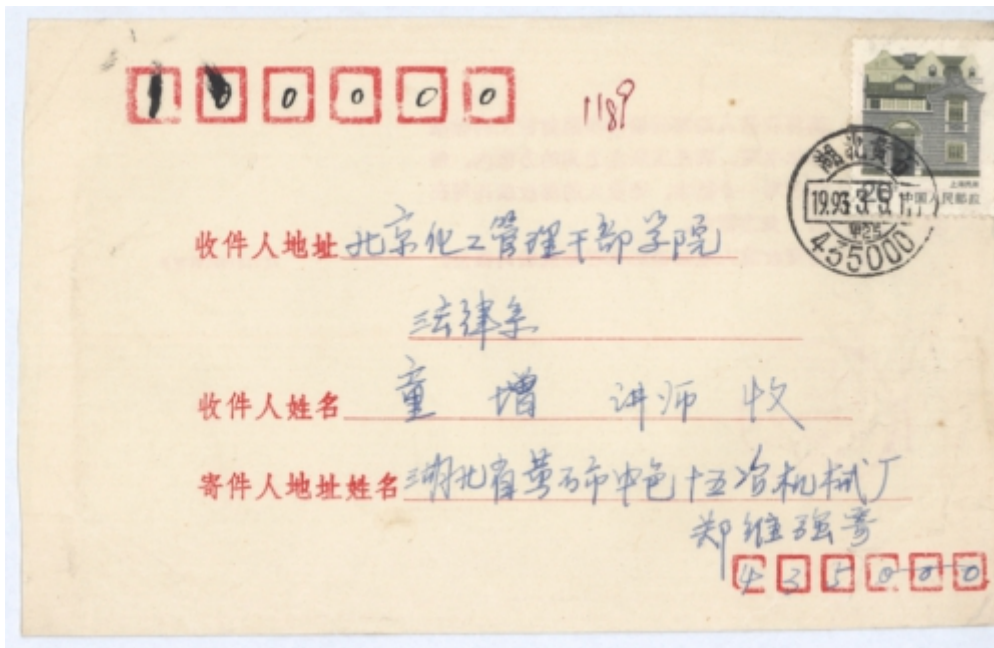 100000
1189
上海民居
20
中国人民邮政
湖北黄石
1993.3.5.1
435000
收件人地址 北京化工管理干部学院
法律系
收件人姓名 童增 讲师 收
寄件人地址姓名 湖北省黄石市中色十五冶机械厂
郑维强寄
435000